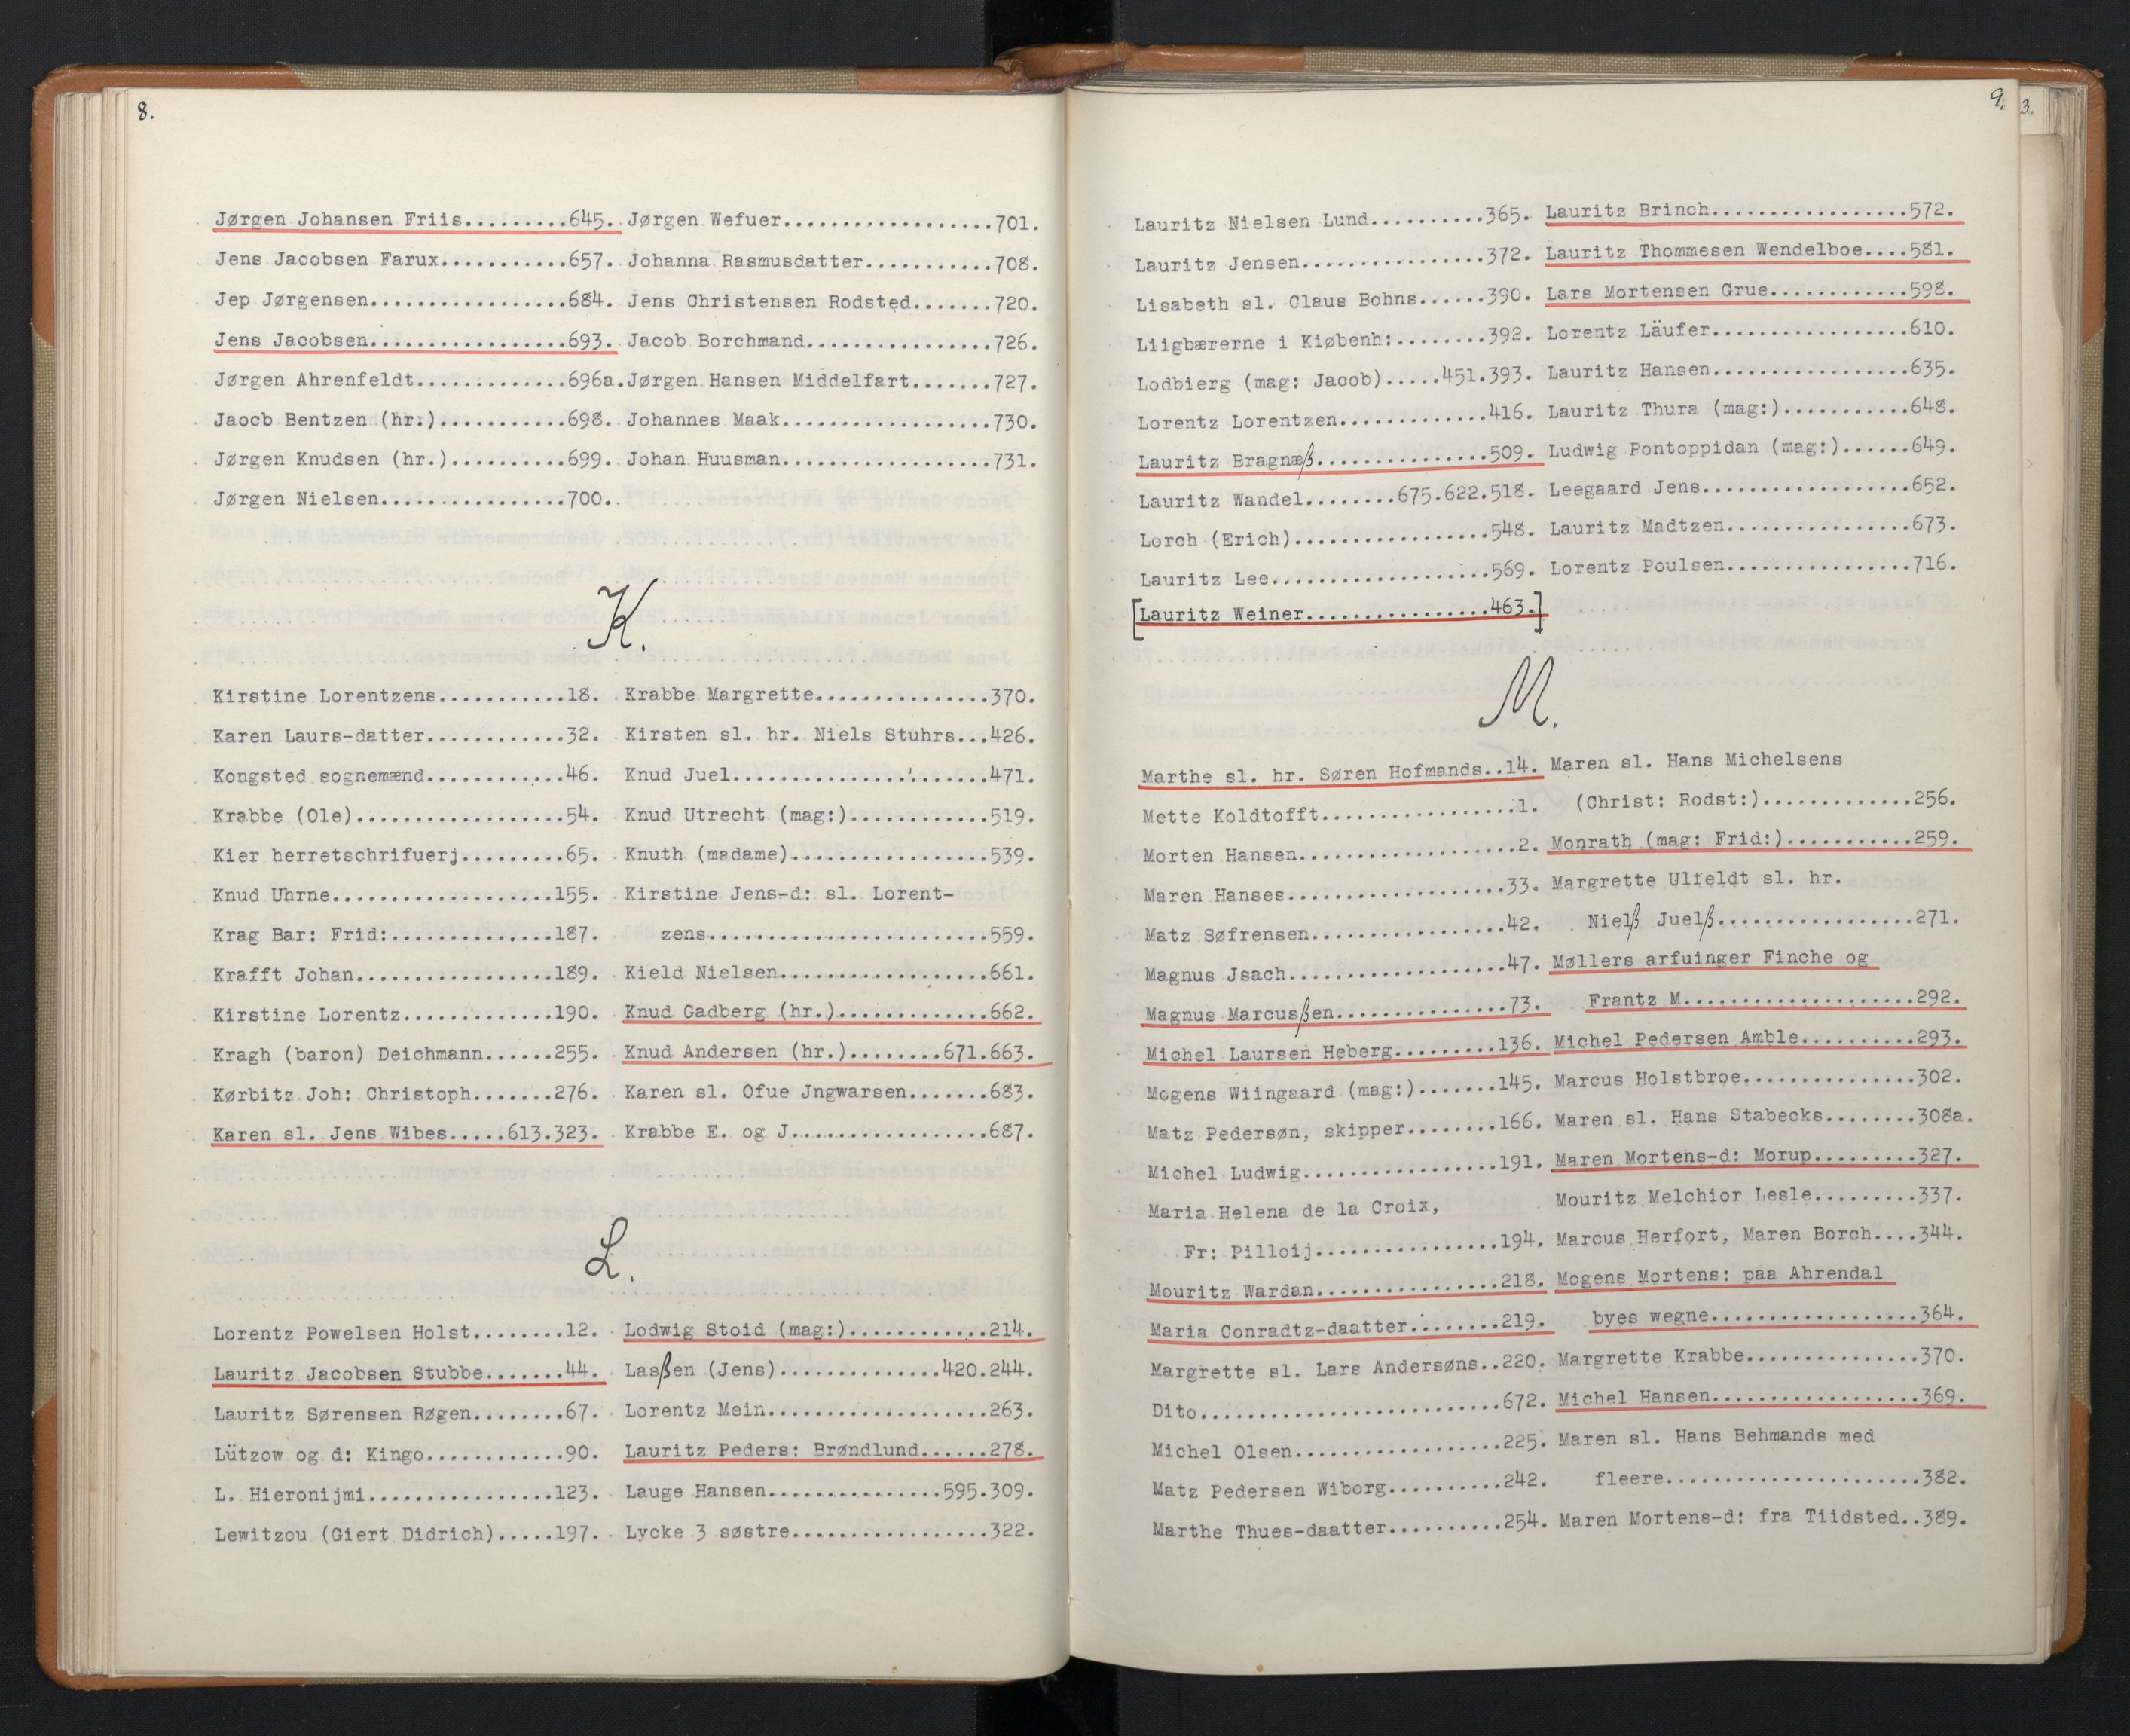 8.
Jørgen Johansen Friis.........645.
Jens Jacobsen Farux...........657.
Jep Jørgensen.................684.
Jens Jacobsen.................693.
Jørgen Ahrenfeldt.............696a.
Jaocb Bentzen (hr.)...........698.
Jørgen Knudsen (hr.)..........699.
Jørgen Nielsen................700.
Jørgen Wefuer..................701.
Johanna Rasmusdatter...........708.
Jens Christensen Rodsted.......720.
Jacob Borchmand................726.
Jørgen Hansen Middelfart.......727.
Johannes Maak..................730.
Johan Huusman..................731.
K.
Kirstine Lorentzens...........18.
Karen Laurs-datter............32.
Kongsted sognemænd............46.
Krabbe (Ole)..................54.
Kier herretschrifuerj.........65.
Knud Uhrne...................155.
Krag Bar: Frid:..............187.
Krafft Johan.................189.
Kirstine Lorentz.............190.
Kragh (baron) Deichmann......255.
Kørbitz Joh: Christoph.......276.
Karen sl. Jens Wibes.....613.323.
Krabbe Margrette...............370.
Kirsten sl. hr. Niels Stuhrs...426.
Knud Juel......................471.
Knud Utrecht (mag:)............519.
Knuth (madame).................539.
Kirstine Jens-d: sl. Lorent-
zens........................559.
Kield Nielsen..................661.
Knud Gadberg (hr.).............662.
Knud Andersen (hr.)........671.663.
Karen sl. Ofue Jngwarsen.......683.
Krabbe E. og J.................687.
L.
Lorentz Powelsen Holst........12.
Lauritz Jacobsen Stubbe.......44.
Lauritz Sørensen Røgen........67.
Lützow og d: Kingo............90.
L. Hieronijmi................123.
Lewitzou (Giert Didrich).....197.
Lodwig Stoid (mag:)............214.
Lasßen (Jens)..............420.244.
Lorentz Mein...................263.
Lauritz Peders: Brøndlund......278.
Lauge Hansen...............595.309.
Lycke 3 søstre.................322.
9.
3.
Lauritz Nielsen Lund..........365.
Lauritz Jensen................372.
Lisabeth sl. Claus Bohns......390.
Liigbærerne i Kiøbenh:........392.
Lodbierg (mag: Jacob).....451.393.
Lorentz Lorentzen.............416.
Lauritz Bragnæß...............509.
Lauritz Wandel........675.622.518.
Lorch (Erich).................548.
Lauritz Lee...................569.
[Lauritz Weiner................463.]
Lauritz Brinch.................572.
Lauritz Thommesen Wendelboe....581.
Lars Mortensen Grue............598.
Lorentz Läufer.................610.
Lauritz Hansen.................635.
Lauritz Thura (mag:)...........648.
Ludwig Pontoppidan (mag:)......649.
Leegaard Jens..................652.
Lauritz Madtzen................673.
Lorentz Poulsen................716.
M.
Marthe sl. hr. Søren Hofmands..14.
Mette Koldtofft.................1.
Morten Hansen...................2.
Maren Hanses...................33.
Matz Søfrensen.................42.
Magnus Jsach...................47.
Magnus Marcusßen...............73.
Michel Laursen Heberg.........136.
Mogens Wiingaard (mag:).......145.
Matz Pedersøn, skipper........166.
Michel Ludwig.................191.
Maria Helena de la Croix,
Fr: Pilloij................194.
Mouritz Wardan................218.
Maria Conradtz-daatter........219.
Margrette sl. Lars Andersøns..220.
Dito..........................672.
Michel Olsen..................225.
Matz Pedersen Wiborg..........242.
Marthe Thues-daatter..........254.
Maren sl. Hans Michelsens
(Christ: Rodst:).............256.
Monrath (mag: Frid:)...........259.
Margrette Ulfeldt sl. hr.
Nielß Juelß.................271.
Møllers arfuinger Finche og
Frantz M....................292.
Michel Pedersen Amble..........293.
Marcus Holstbroe...............302.
Maren sl. Hans Stabecks........308a.
Maren Mortens-d: Morup.........327.
Mouritz Melchior Lesle.........337.
Marcus Herfort, Maren Borch....344.
Mogens Mortens: paa Ahrendal
byes wegne..................364.
Margrette Krabbe...............370.
Michel Hansen..................369.
Maren sl. Hans Behmands med
fleere......................382.
Maren Mortens-d: fra Tiidsted..389.